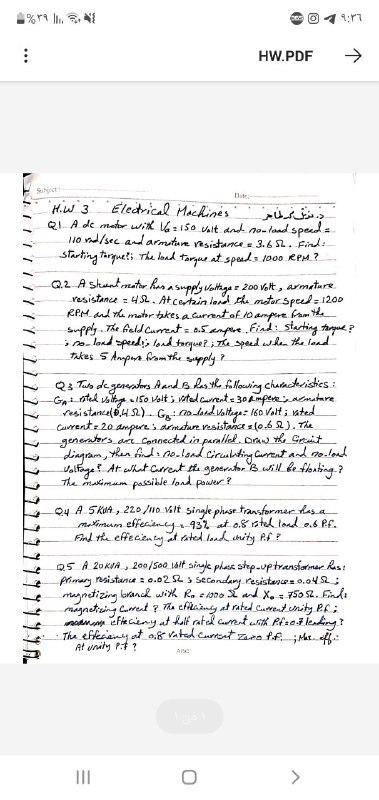 %٣٩
٩:٣٦
HW.PDF
Subject:
Date:
H.W 3 Electrical Machines
Q1 A dc motor with Vs=150 Volt and no-load speed =
110 rad/sec and armature resistance = 3.6 Ω. Find:
starting torque?; The load torque at speed = 1000 RPM?
Q.2 A Shunt motor has a supply voltage = 200 Volt, armature
resistance = 4Ω. At certain load the motor speed = 1200
RPM and the motor takes a current of 10 ampere from the
supply. The field current = 0.5 ampere. Find: starting torque?
; no-load speed; load torque?; The speed when the load
takes 5 Ampers from the supply?
Q.3 Two dc generators A and B has the following characteristics:
GA: rated Voltage = 150 Volt; rated current = 30 Ampere; armature
resistance (0.4 Ω). GB: no-load Voltage = 160 Volt; rated
current = 20 ampere; armature resistance = (0.6 Ω). The
generators are connected in parallel. Draw the Circuit
diagram, then find: no-load Circulating Current and no-load
Voltage? At what Current the generator B will be floating?
The maximum possible load power?
Q.4 A 5 KVA, 220/110 Volt single phase transformer has a
maximum effeciency = 93% at 0.8 rated load 0.6 P.F.
Find the effeciency at rated load unity P.f?
Q.5 A 20 KVA, 200/500 Volt single phase step-up transformer has:
Primary resistance = 0.02 Ω; Secondary resistance = 0.04 Ω;
magnetizing branch with Ro = 1000 Ω and Xo = 750 Ω. Find:
magnetizing Current? The effeciency at rated Current Unity P.f;
effeciency at half rated current with Pf=0.7 leading?
The effeciency at 0.8 rated Current Zero P.f. ; Max. eff.
At Unity P.f?